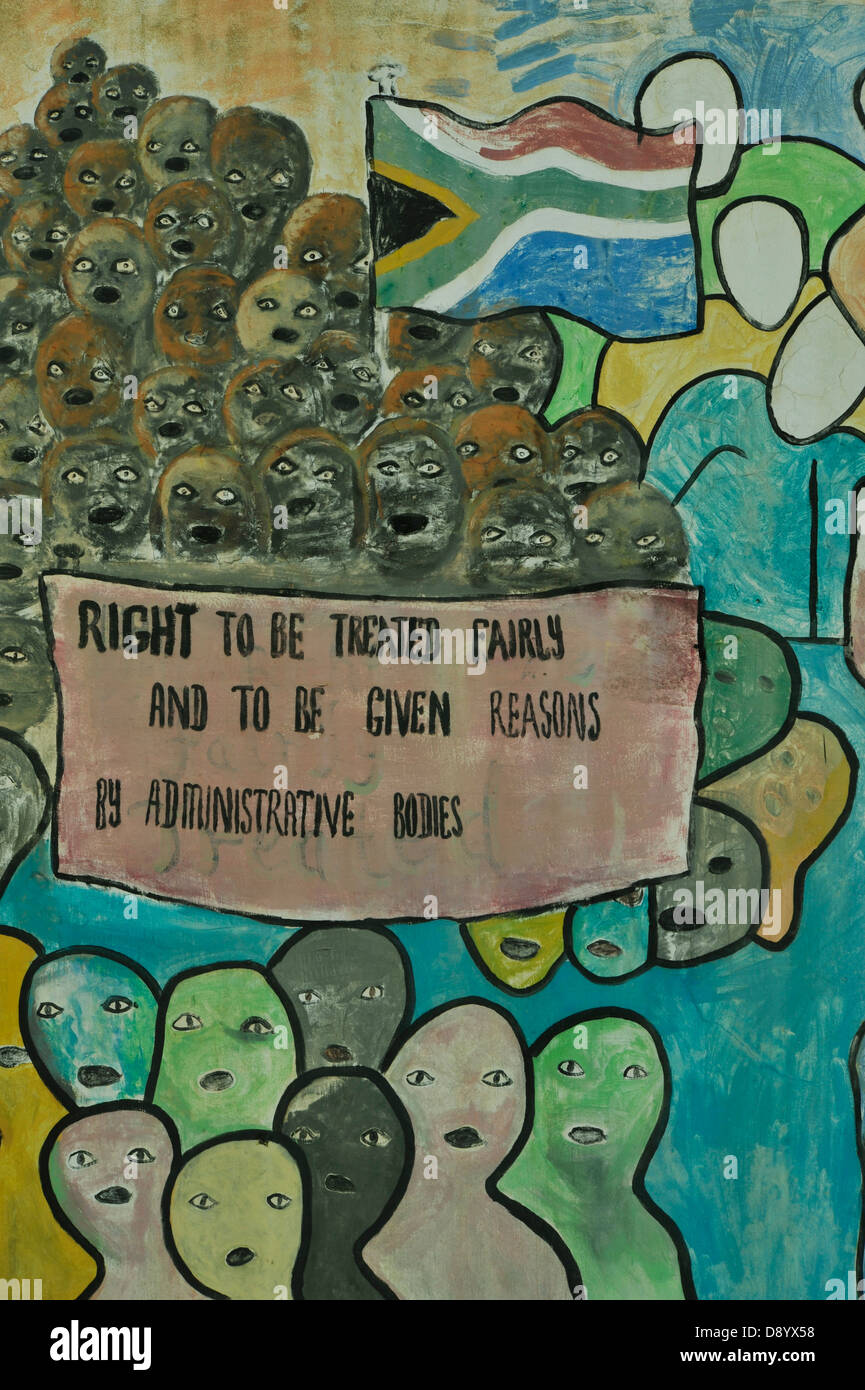 RIGHT TO BE TREATED FAIRLY
AND TO BE GIVEN REASONS
BY ADMINISTRATIVE BODIES
alamy
Image ID: D8YX58
www.alamy.com